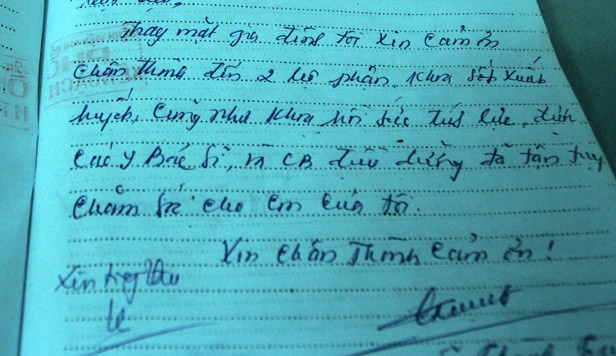 Thay mặt gia đình tôi xin cảm ơn
chân thành đến 2 bộ phận khoa sốt xuất
huyết, cũng như khoa hồi sức tích cực, đến
các y Bác sĩ, và CB điều dưỡng đã tận tụy
chăm sóc cho em của tôi.
Xin chân thành cảm ơn!